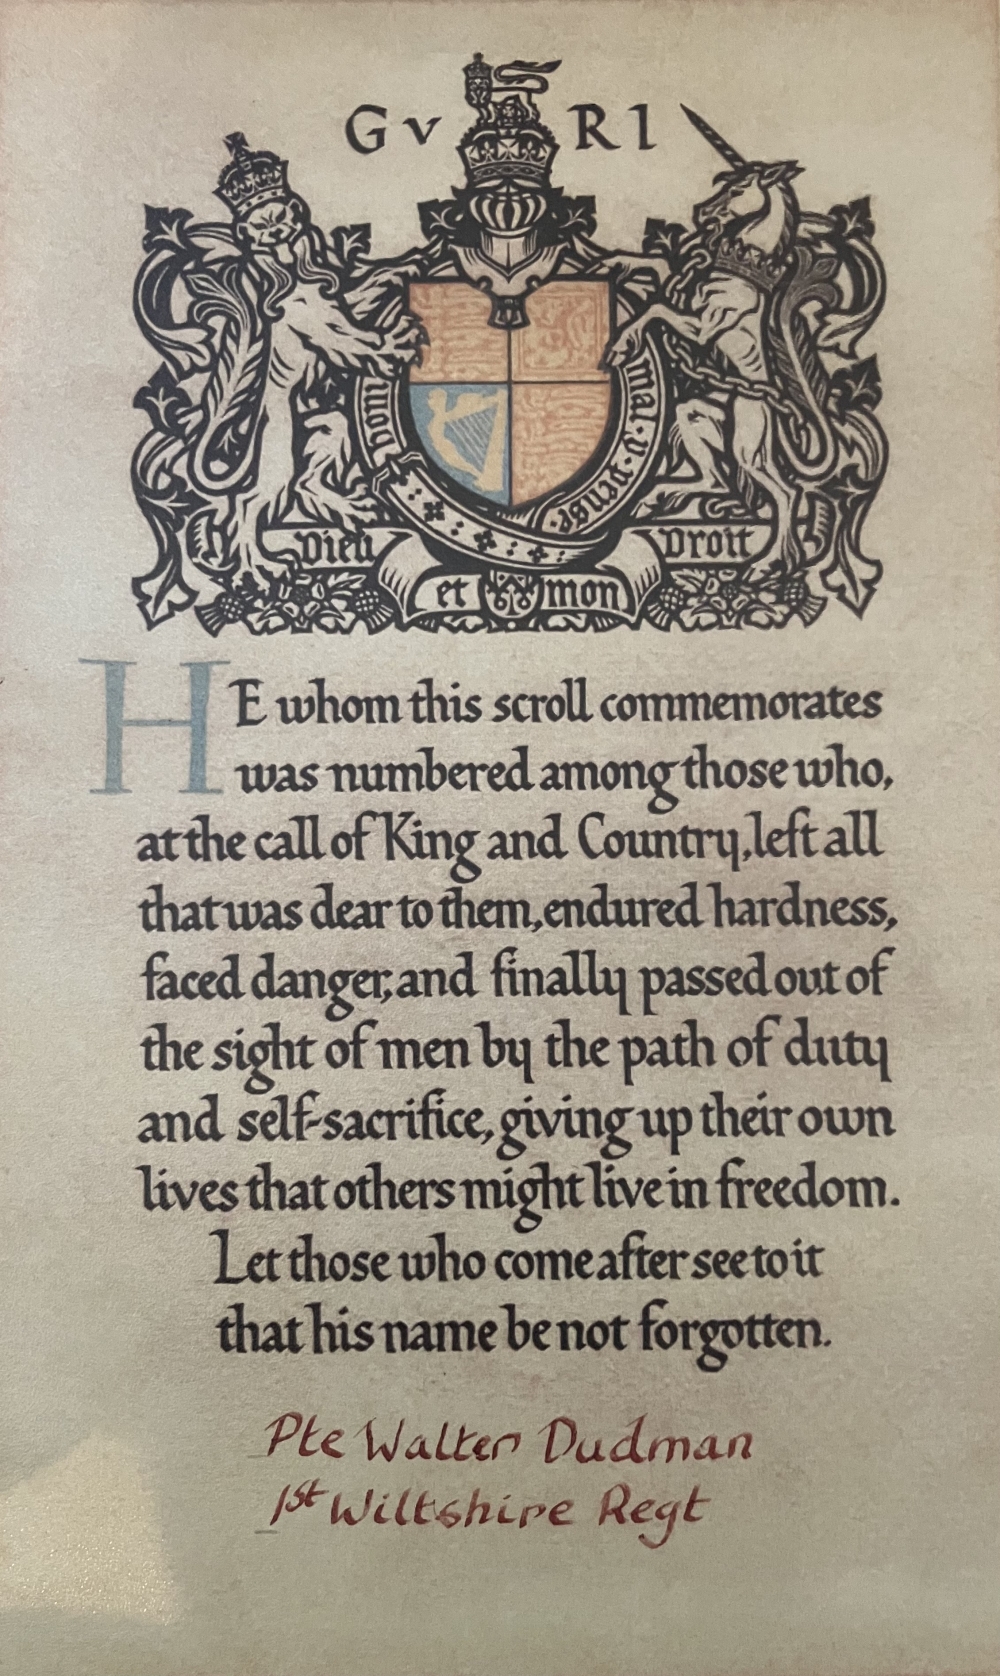 G v R I
honi
mal · y · pense ·
Dieu et mon Droit
HE whom this scroll commemorates
was numbered among those who,
at the call of King and Country, left all
that was dear to them, endured hardness,
faced danger, and finally passed out of
the sight of men by the path of duty
and self-sacrifice, giving up their own
lives that others might live in freedom.
Let those who come after see to it
that his name be not forgotten.
Pte Walter Dudman
1st Wiltshire Regt